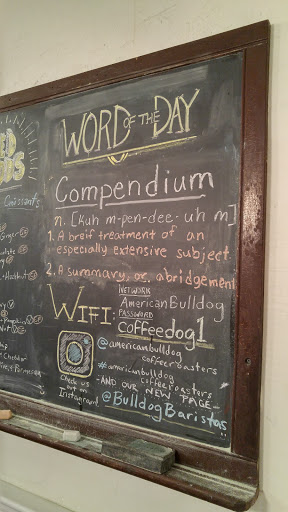 WORD OF THE DAY
Compendium
n. [kuh m-pen-dee-uh m]
1. A breif treatment of an
especially extensive subject
2. A summary, or abridgement
WIFI:
NETWORK
AmericanBulldog
PASSWORD
coffeedog1
@americanbulldog
coffeeroasters
#americanbulldog
coffeeroasters
-AND OUR NEW PAGE-
@BulldogBaristas
Check us
out on
Instagram!
Croissants
Ginger